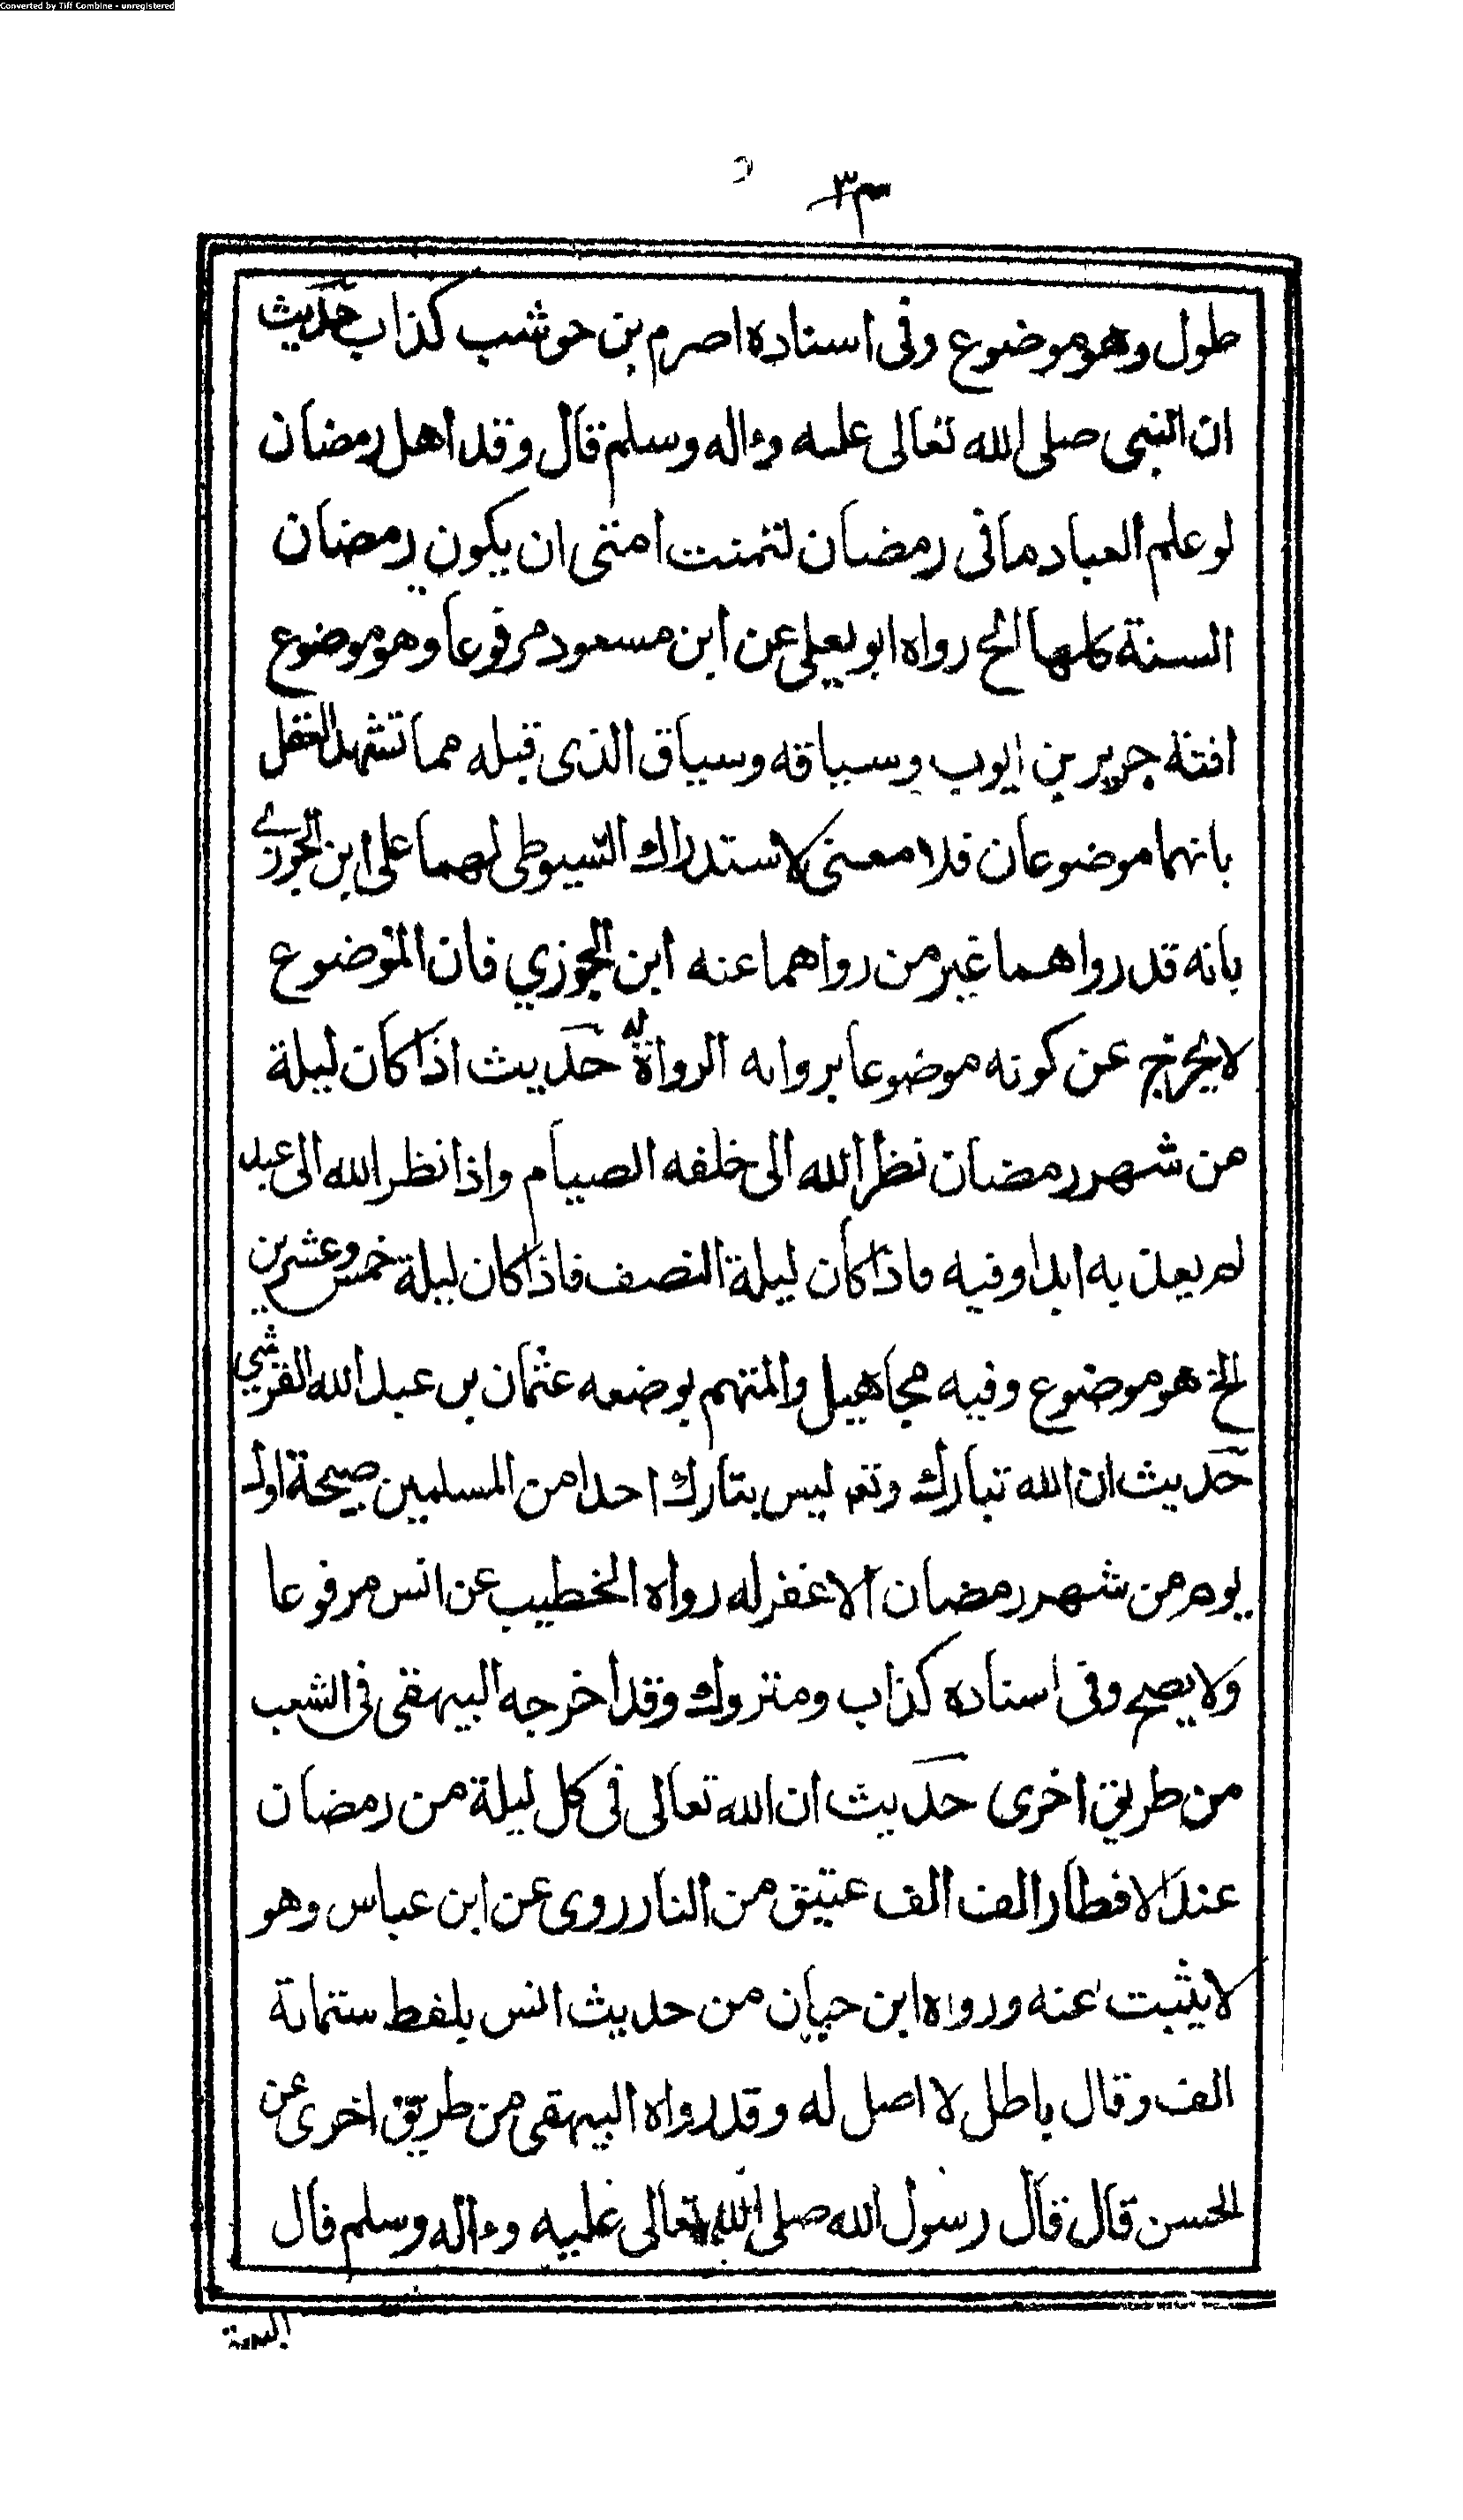 Converted by Tiff Combine - unregistered
٣
طول وهو موضوع وفى اسناده اصرم بن حوشب كذاب حديث
ان النبى صلى الله تعالى عليه وءاله وسلم قال وقد اهل رمضان
لو علم العباد مافى رمضان لتمنت امتى ان يكون رمضان
السنة كلها الخ رواه ابو يعلى عن ابن مسعود مرفوعا وهو موضوع
افته جرير بن ايوب وسياقه وسياق الذى قبله مما تشهد العقل
بانهما موضوعان فلا معنى لاستدراك السيوطى لهما على ابن الجوزي
بانه قد رواهما غير من رواهما عنه ابن الجوزي فان الموضوع
لا يخرج عن كونه موضوعا برواية الرواة له حديث اذا كان ليلة
من شهر رمضان نظر الله الى خلقه الصيام واذا نظر الله الى عبد
لم يعذبه ابدا وفيه فاذا كان ليلة النصف فاذا كان ليلة خمس وعشرين
الخ هو موضوع وفيه مجاهيل والمتهم بوضعه عثمان بن عبد الله القرشي
حديث ان الله تبارك وتعـ ليس بتارك احدا من المسلمين صبيحة اول
يوم من شهر رمضان الا غفر له رواه الخطيب عن انس مرفوعا
ولا يصح وفى اسناده كذاب ومتروك وقد اخرجه البيهقى فى الشعب
من طريق اخرى حديث ان الله تعالى فى كل ليلة من رمضان
عند الافطار الف الف عتيق من النار روى عن ابن عباس وهو
لا يثبت عنه ورواه ابن حبان من حديث انس بلفظ ستمائة
الف وقال باطل لا اصل له وقد رواه البيهقى من طريق اخرى عن
الحسن قال قال رسول الله صلى الله تعالى عليه وءاله وسلم قال